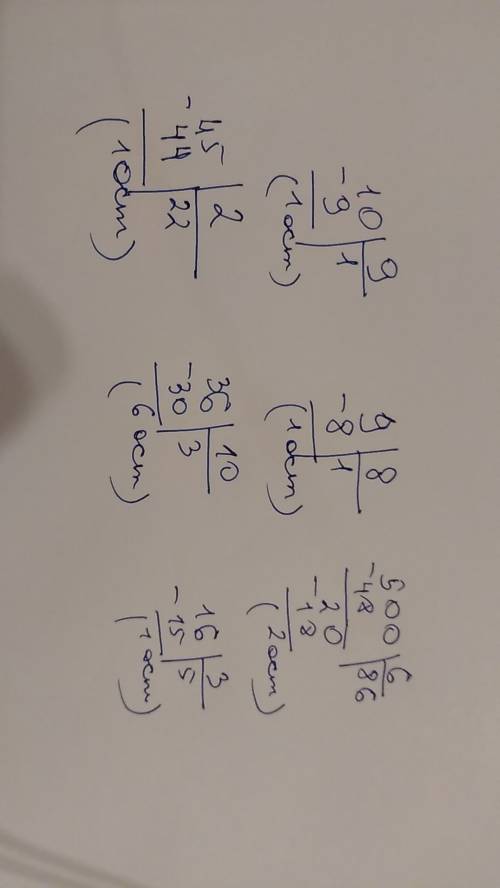 10 | 9
-9 | 1
(1 ост)
9 | 8
-8 | 1
(1 ост)
500 | 6
-48 | 86
-20
18
(2 ост)
-45 | 2
44 | 22
(1 ост)
36 | 10
-30 | 3
(6 ост)
16 | 3
-15 | 5
(1 ост)